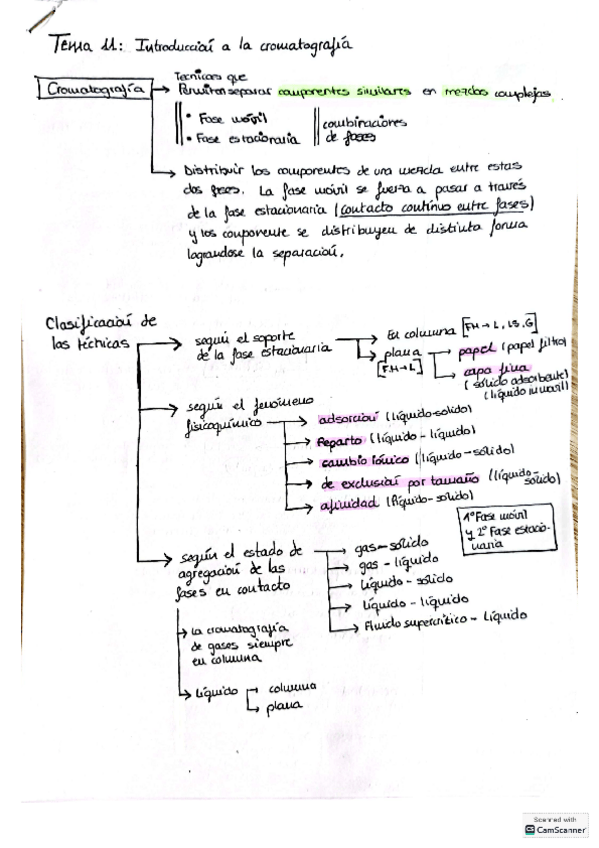 Tema 11: Introducción a la cromatografía
Cromatografía
Técnicas que
Permiten separar componentes similares en mezclas complejas.
• Fase móvil
• Fase estacionaria
combinaciones
de fases
Distribuir los componentes de una mezcla entre estas
dos fases. La fase móvil se fuerza a pasar a través
de la fase estacionaria (contacto continuo entre fases)
y los componente se distribuyen de distinta forma
lograndose la separación.
Clasificación de
las técnicas
según el soporte
de la fase estacionaria
En columna [FM→L, LS, G]
plana
[FM→L]
papel (papel filtro)
capa fina
(sólido adsorbente)
según el fenómeno
fisicoquímico
adsorción (líquido-sólido)
Reparto (líquido-líquido)
cambio iónico (líquido-sólido)
de exclusión por tamaño (líquido-sólido)
afinidad (líquido-sólido)
1º Fase móvil
y 2º Fase estacio-
naria
según el estado de
agregación de las
fases en contacto
gas-sólido
gas-líquido
líquido-sólido
líquido-líquido
Fluido supercrítico - líquido
la cromatografía
de gases siempre
en columna
líquido
columna
plana
Scanned with
CamScanner